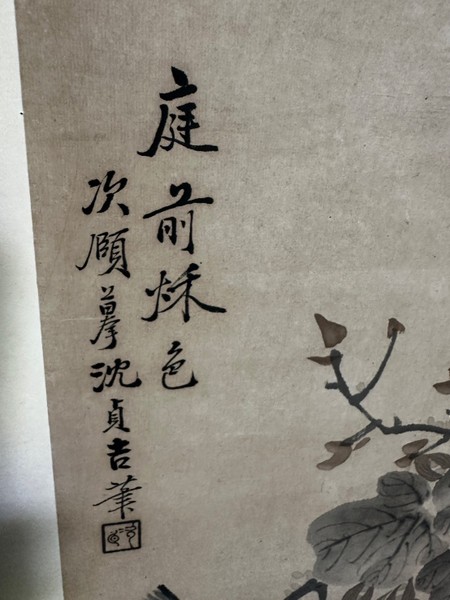 庭前烁色
次頋摹沈貞吉筆